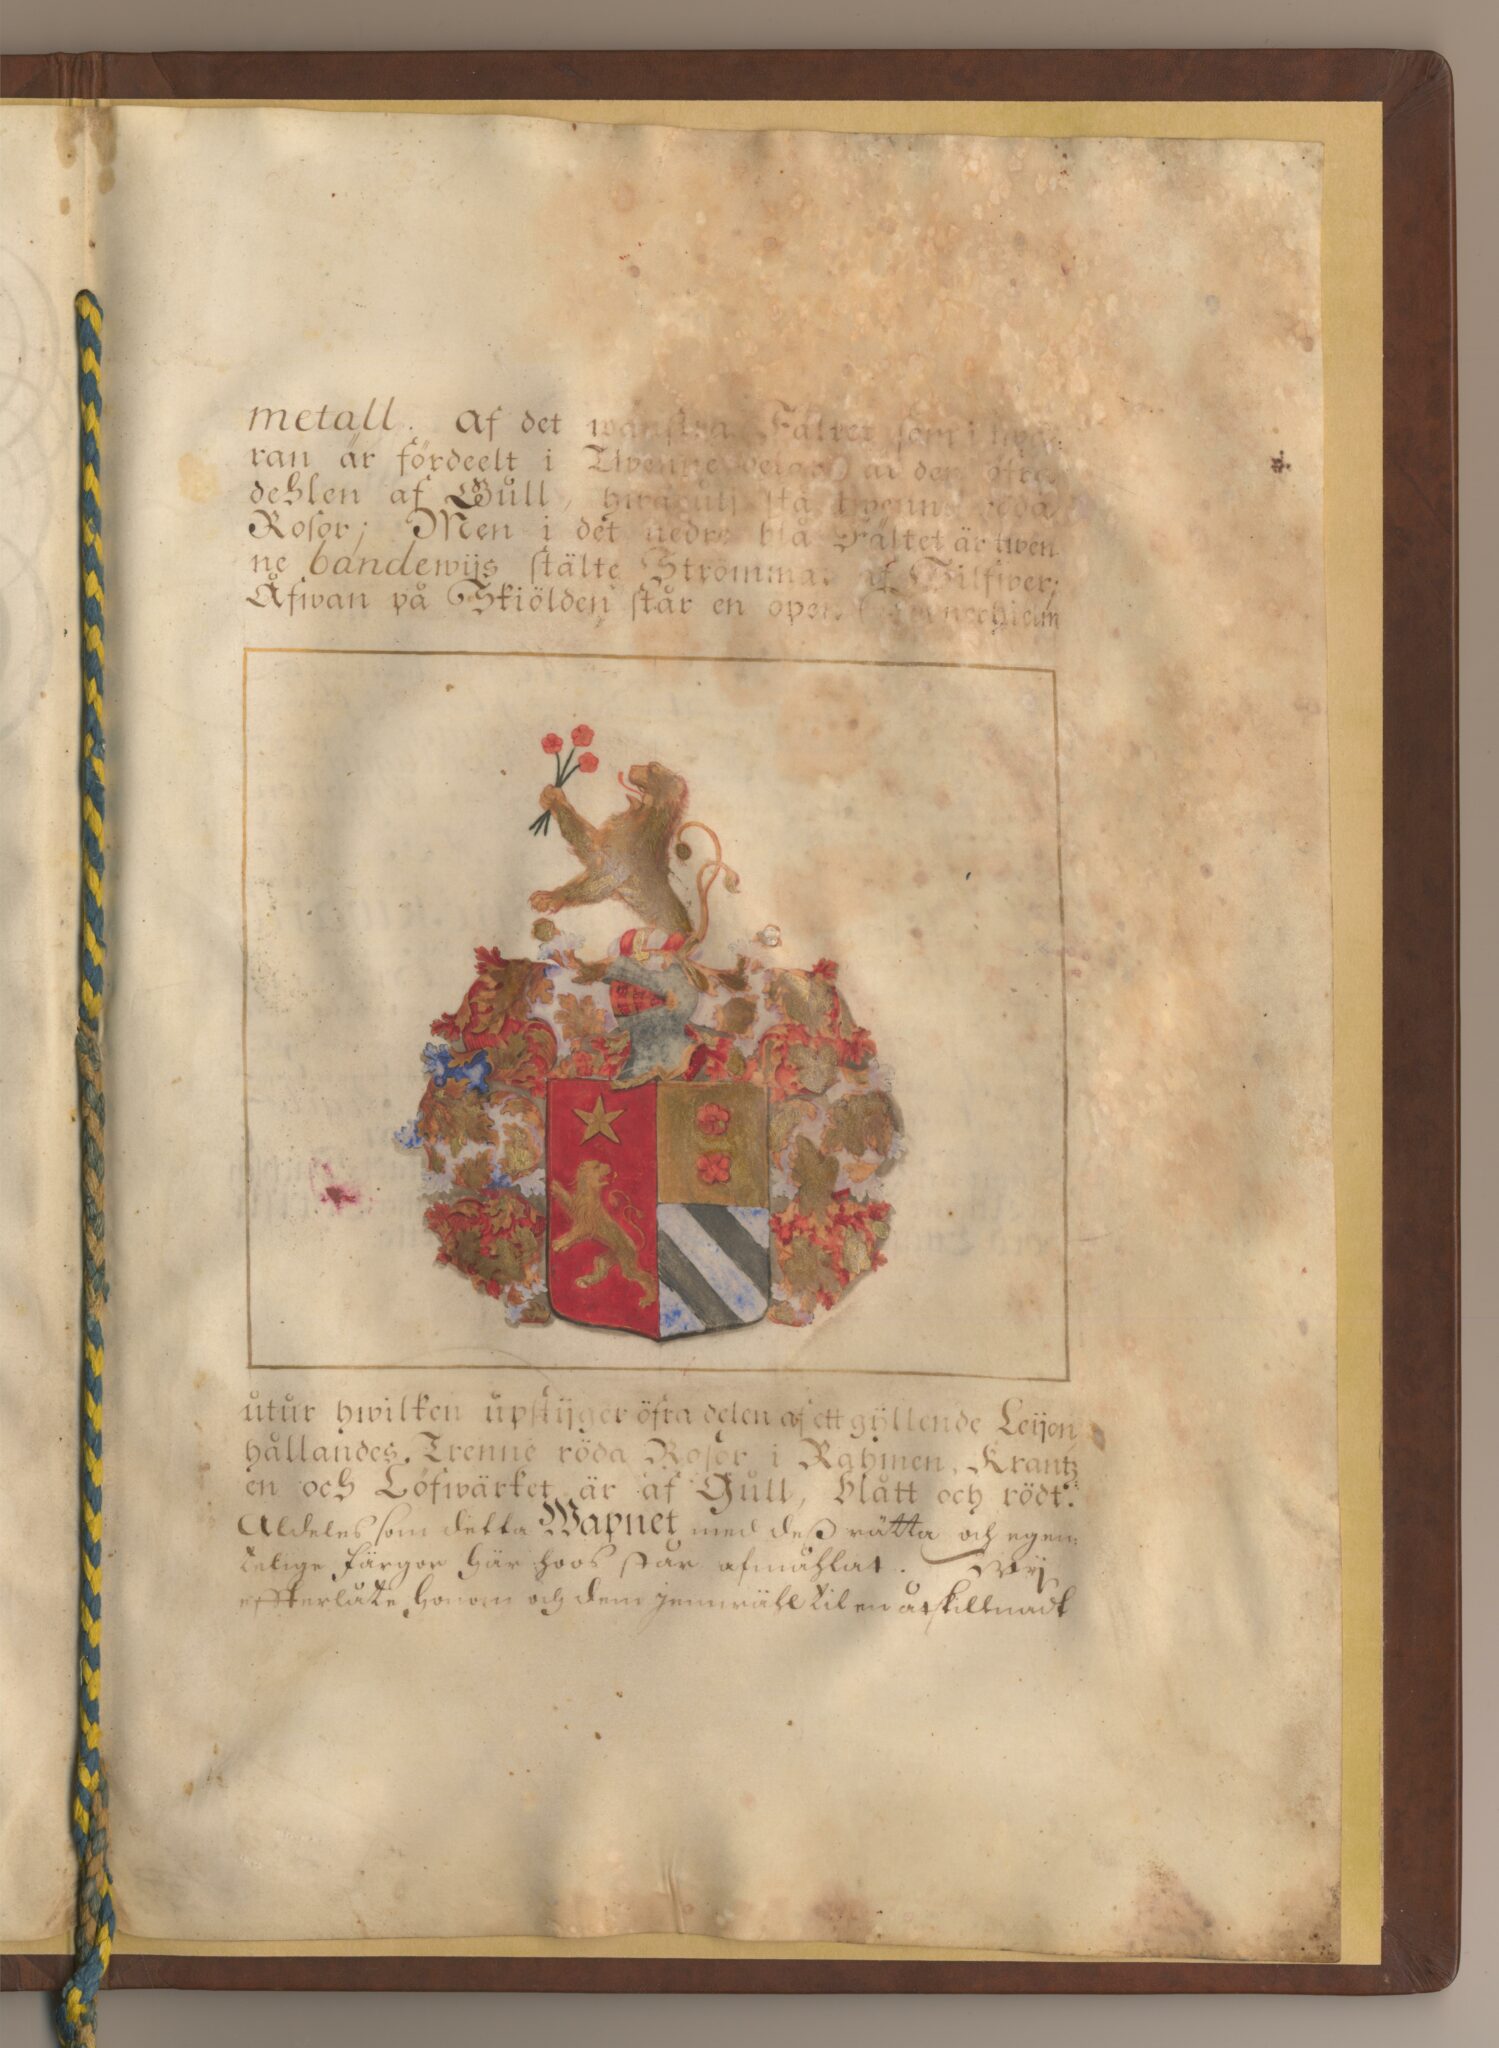 metall. Af det wänstra Fältet som i twä-
ran är fördeelt i Twenne delar är den öfre
dehlen af Gull, hwarutj stå twenne röda
Rosor; Men i det nedre blå Fältet är twen
ne bandewijs stälte Strömmar af Silfwer;
Åfwan på Skiölden står en open
utur hwilken upstijger öfra delen af ett gyllende Leijon
hållandes Trenne röda Rosor i Ramen, Krantz
en och Löfwärket är af Gull, blått och rödt.
Aldeles som detta Wapnet med deß rätta och egen-
telige färgor här hoos står afmåhlat. Wij
effterlåte honom och dem jemwähl til en åtskillnadt